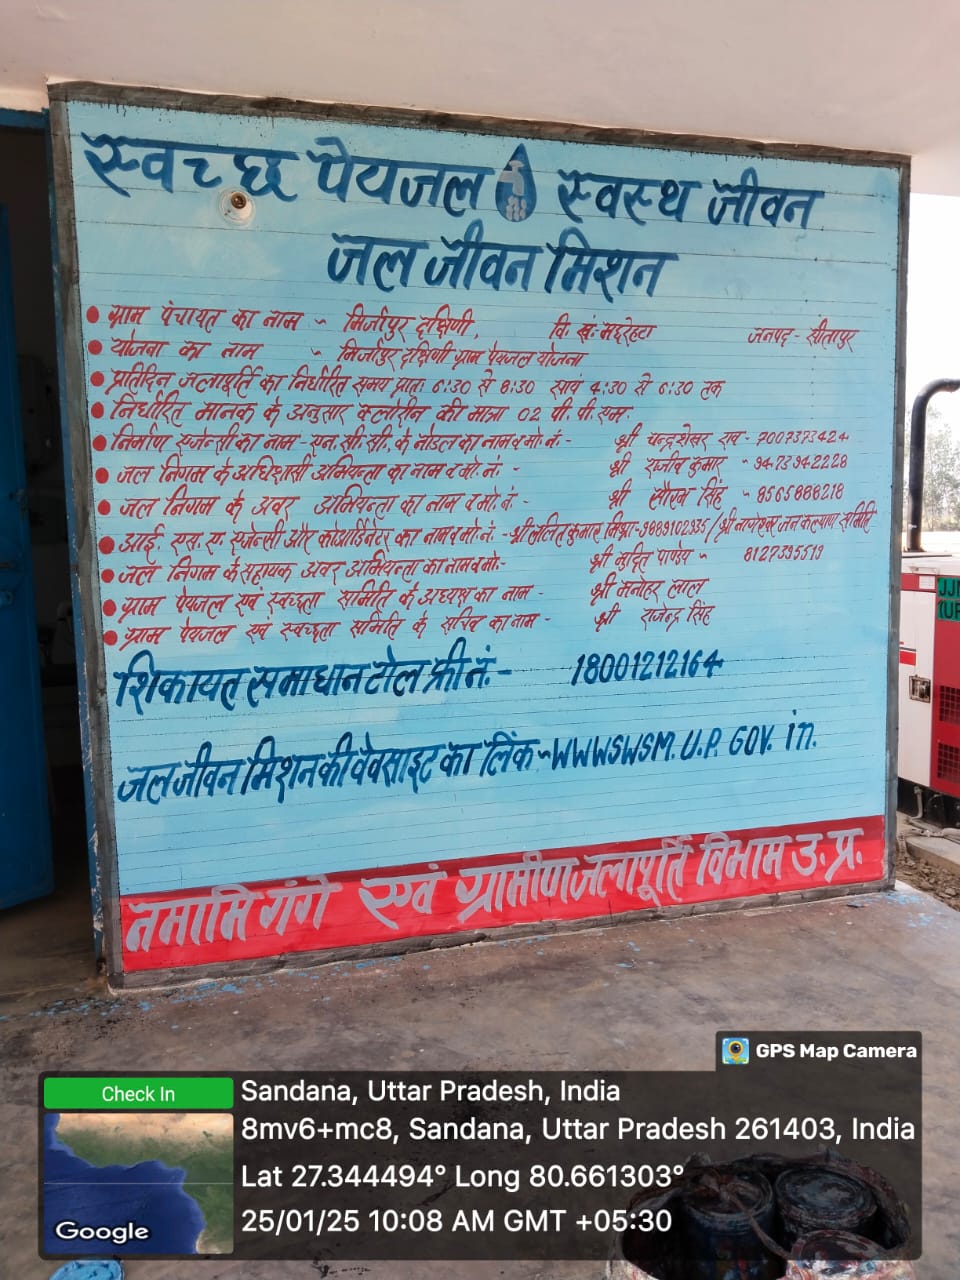 स्वच्छ पेयजल स्वस्थ जीवन
जल जीवन मिशन
• ग्राम पंचायत का नाम - मिर्जापुर दक्षिणी, वि. खं. मछरेहटा जनपद - सीतापुर
• योजना का नाम - मिर्जापुर दक्षिणी ग्राम पेयजल योजना
• प्रतिदिन जलापूर्ति का निर्धारित समय प्रातः 6:30 से 8:30 सायं 4:30 से 6:30 तक
• निर्धारित मानक के अनुसार क्लोरीन की मात्रा 02 पी. पी. एम.
• निर्माण एजेन्सी का नाम - एन. सी. सी. के नोडल का नाम व मो. नं. - श्री चन्द्रशेखर राव - 7007373424
• जल निगम के अधिशासी अभियन्ता का नाम व मो. नं. - श्री राजीव कुमार - 9473942228
• जल निगम के अवर अभियन्ता का नाम व मो. नं. - श्री सौरभ सिंह - 8565888218
• आई. एस. ए. एजेन्सी और कोआर्डिनेटर का नाम व मो. नं. - श्री ललित कुमार मिश्रा - 9889102335 / श्री नागेश्वर जन कल्याण समिति
• जल निगम के सहायक अवर अभियन्ता का नाम व मो. - श्री मुदित पाण्डेय - 8127395519
• ग्राम पेयजल एवं स्वच्छता समिति के अध्यक्ष का नाम - श्री मनोहर लाल
• ग्राम पेयजल एवं स्वच्छता समिति के सचिव का नाम - श्री राजेन्द्र सिंह
शिकायत समाधान टोल फ्री नं. - 18001212164
जल जीवन मिशन की वेबसाइट का लिंक - WWWSWSM. U.P. GOV. in.
नमामि गंगे एवं ग्रामीण जलापूर्ति विभाग उ. प्र.
GPS Map Camera
Check In
Sandana, Uttar Pradesh, India
8mv6+mc8, Sandana, Uttar Pradesh 261403, India
Lat 27.344494° Long 80.661303°
25/01/25 10:08 AM GMT +05:30
Google